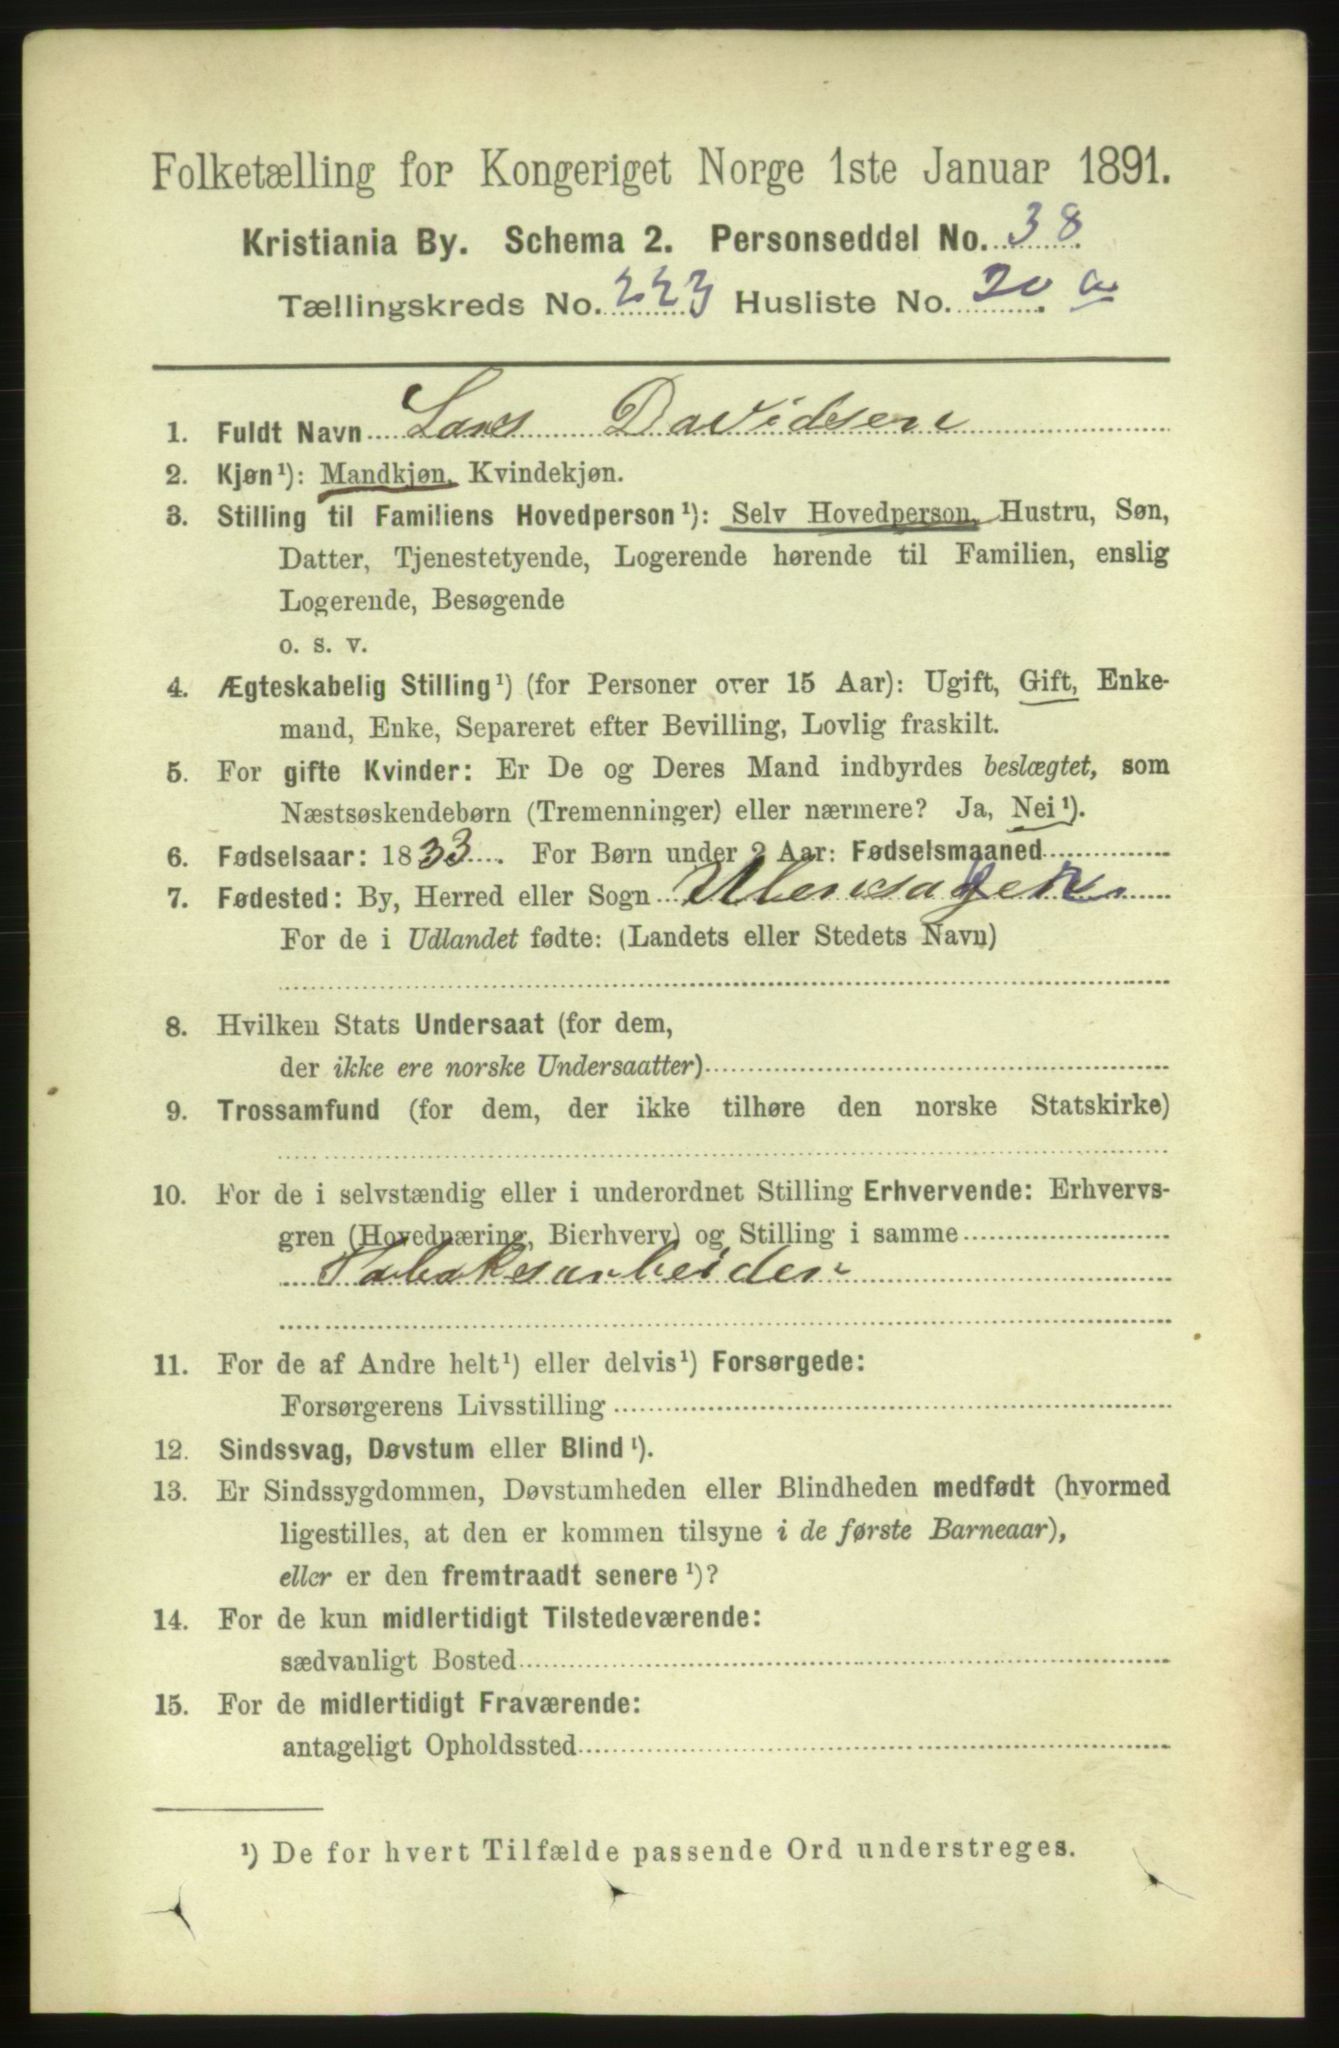 Folketælling for Kongeriget Norge 1ste Januar 1891.
Kristiania By. Schema 2. Personseddel No. 38
Tællingskreds No. 223 Husliste No. 20 a
1. Fuldt Navn Lars Davidsen
2. Kjøn¹): Mandkjøn, Kvindekjøn.
3. Stilling til Familiens Hovedperson¹): Selv Hovedperson, Hustru, Søn,
Datter, Tjenestetyende, Logerende hørende til Familien, enslig
Logerende, Besøgende
o. s. v.
4. Ægteskabelig Stilling¹) (for Personer over 15 Aar): Ugift, Gift, Enke-
mand, Enke, Separeret efter Bevilling, Lovlig fraskilt.
5. For gifte Kvinder: Er De og Deres Mand indbyrdes beslægtet, som
Næstsøskendebørn (Tremenninger) eller nærmere? Ja, Nei¹).
6. Fødselsaar: 1833. For Børn under 2 Aar: Fødselsmaaned
7. Fødested: By, Herred eller Sogn
For de i Udlandet fødte: (Landets eller Stedets Navn)
8. Hvilken Stats Undersaat (for dem,
der ikke ere norske Undersaatter)
9. Trossamfund (for dem, der ikke tilhøre den norske Statskirke)
10. For de i selvstændig eller i underordnet Stilling Erhvervende: Erhvervs-
gren (Hovednæring, Bierhverv) og Stilling i samme
Tabaksarbeider
11. For de af Andre helt¹) eller delvis¹) Forsørgede:
Forsørgerens Livsstilling
12. Sindssvag, Døvstum eller Blind¹).
13. Er Sindssygdommen, Døvstumheden eller Blindheden medfødt (hvormed
ligestilles, at den er kommen tilsyne i de første Barneaar),
eller er den fremtraadt senere¹)?
14. For de kun midlertidigt Tilstedeværende:
sædvanligt Bosted
15. For de midlertidigt Fraværende:
antageligt Opholdssted
¹) De for hvert Tilfælde passende Ord understreges.